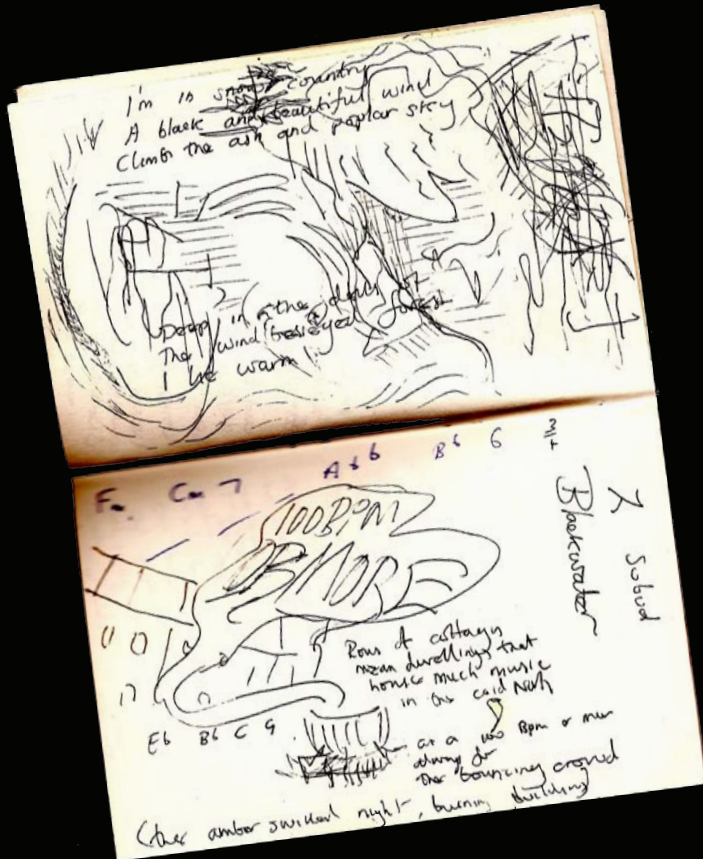 I'm in snow country
A black and beautiful wind
Climbs the ash and poplar sky
Deep in the
The wind besieged forest
I lie warm
Fm Cm 7 Ab 6 Bb 6
3/4
Blackwater
Subud
100BPM
OR MORE
Rows of cottages
mean dwellings that
house much music
in this cold North
at a 100 Bpm or more
always for
the bouncing crowd
Eb Bb C G
(the amber swirled night, burning building